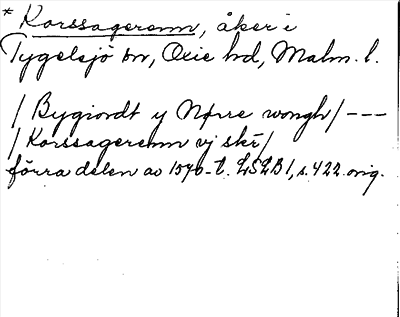 * Korssagerenn, åker i
Tygelsjö sn, Oxie hd, Malm. l.
/ Bygiordt y Nørre wongh / ---
/ Korssagerenn vj skr /
förra delen av 1570-t. LSLB 1, s. 422 orig.